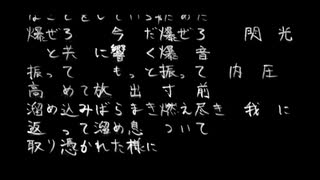 なことをしている為めに
爆ぜろ 今だ爆ぜろ 閃光
と共に響く爆音
振って もっと振って 内圧
高めて放出す前
溜め込みばらまき燃え尽き 我に
返って溜め息ついて
取り憑かれた様に